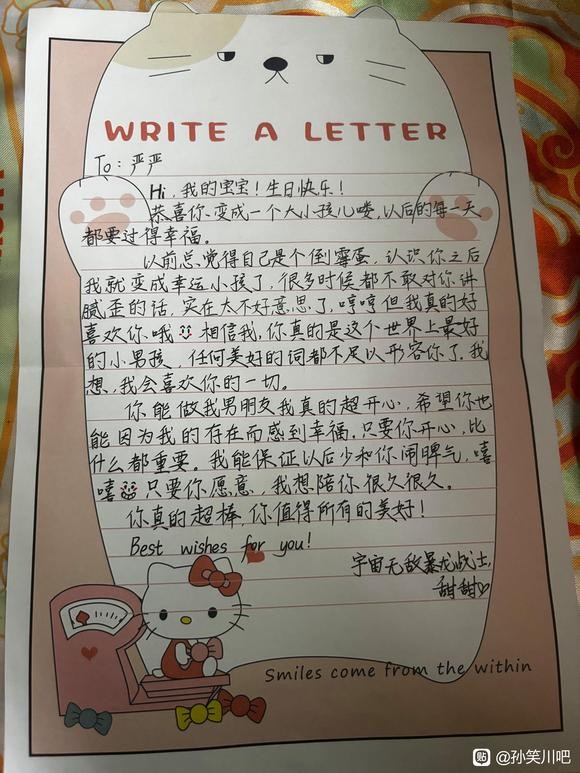 WRITE A LETTER
To：严严
Hi，我的宝宝！生日快乐！
恭喜你变成一个大小孩儿喽，以后的每一天
都要过得幸福。
以前总觉得自己是个倒霉蛋，认识你之后
我就变成幸运小孩了，很多时候都不敢对你讲
腻歪的话，实在太不好意思了，哼哼但我真的好
喜欢你哦 相信我，你真的是这个世界上最好
的小男孩，任何美好的词都不足以形容你了，我
想，我会喜欢你的一切。
你能做我男朋友我真的超开心，希望你也
能因为我的存在而感到幸福，只要你开心，比
什么都重要。我能保证以后少和你闹脾气，嘻
嘻 只要你愿意，我想陪你很久很久。
你真的超棒，你值得所有的美好！
Best wishes for you!
宇宙无敌暴龙战士
甜甜♡
Smiles come from the within
贴 @孙笑川吧